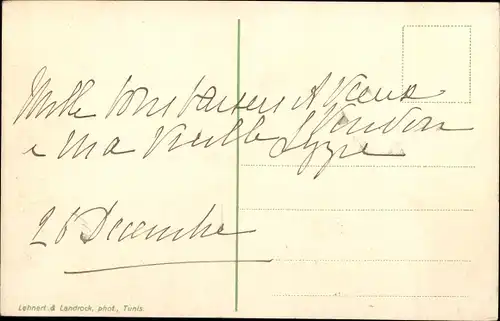 Mille bons baisers & vœux
à ma vieille
26 Decembre
Lehnert & Landrock, phot., Tunis.